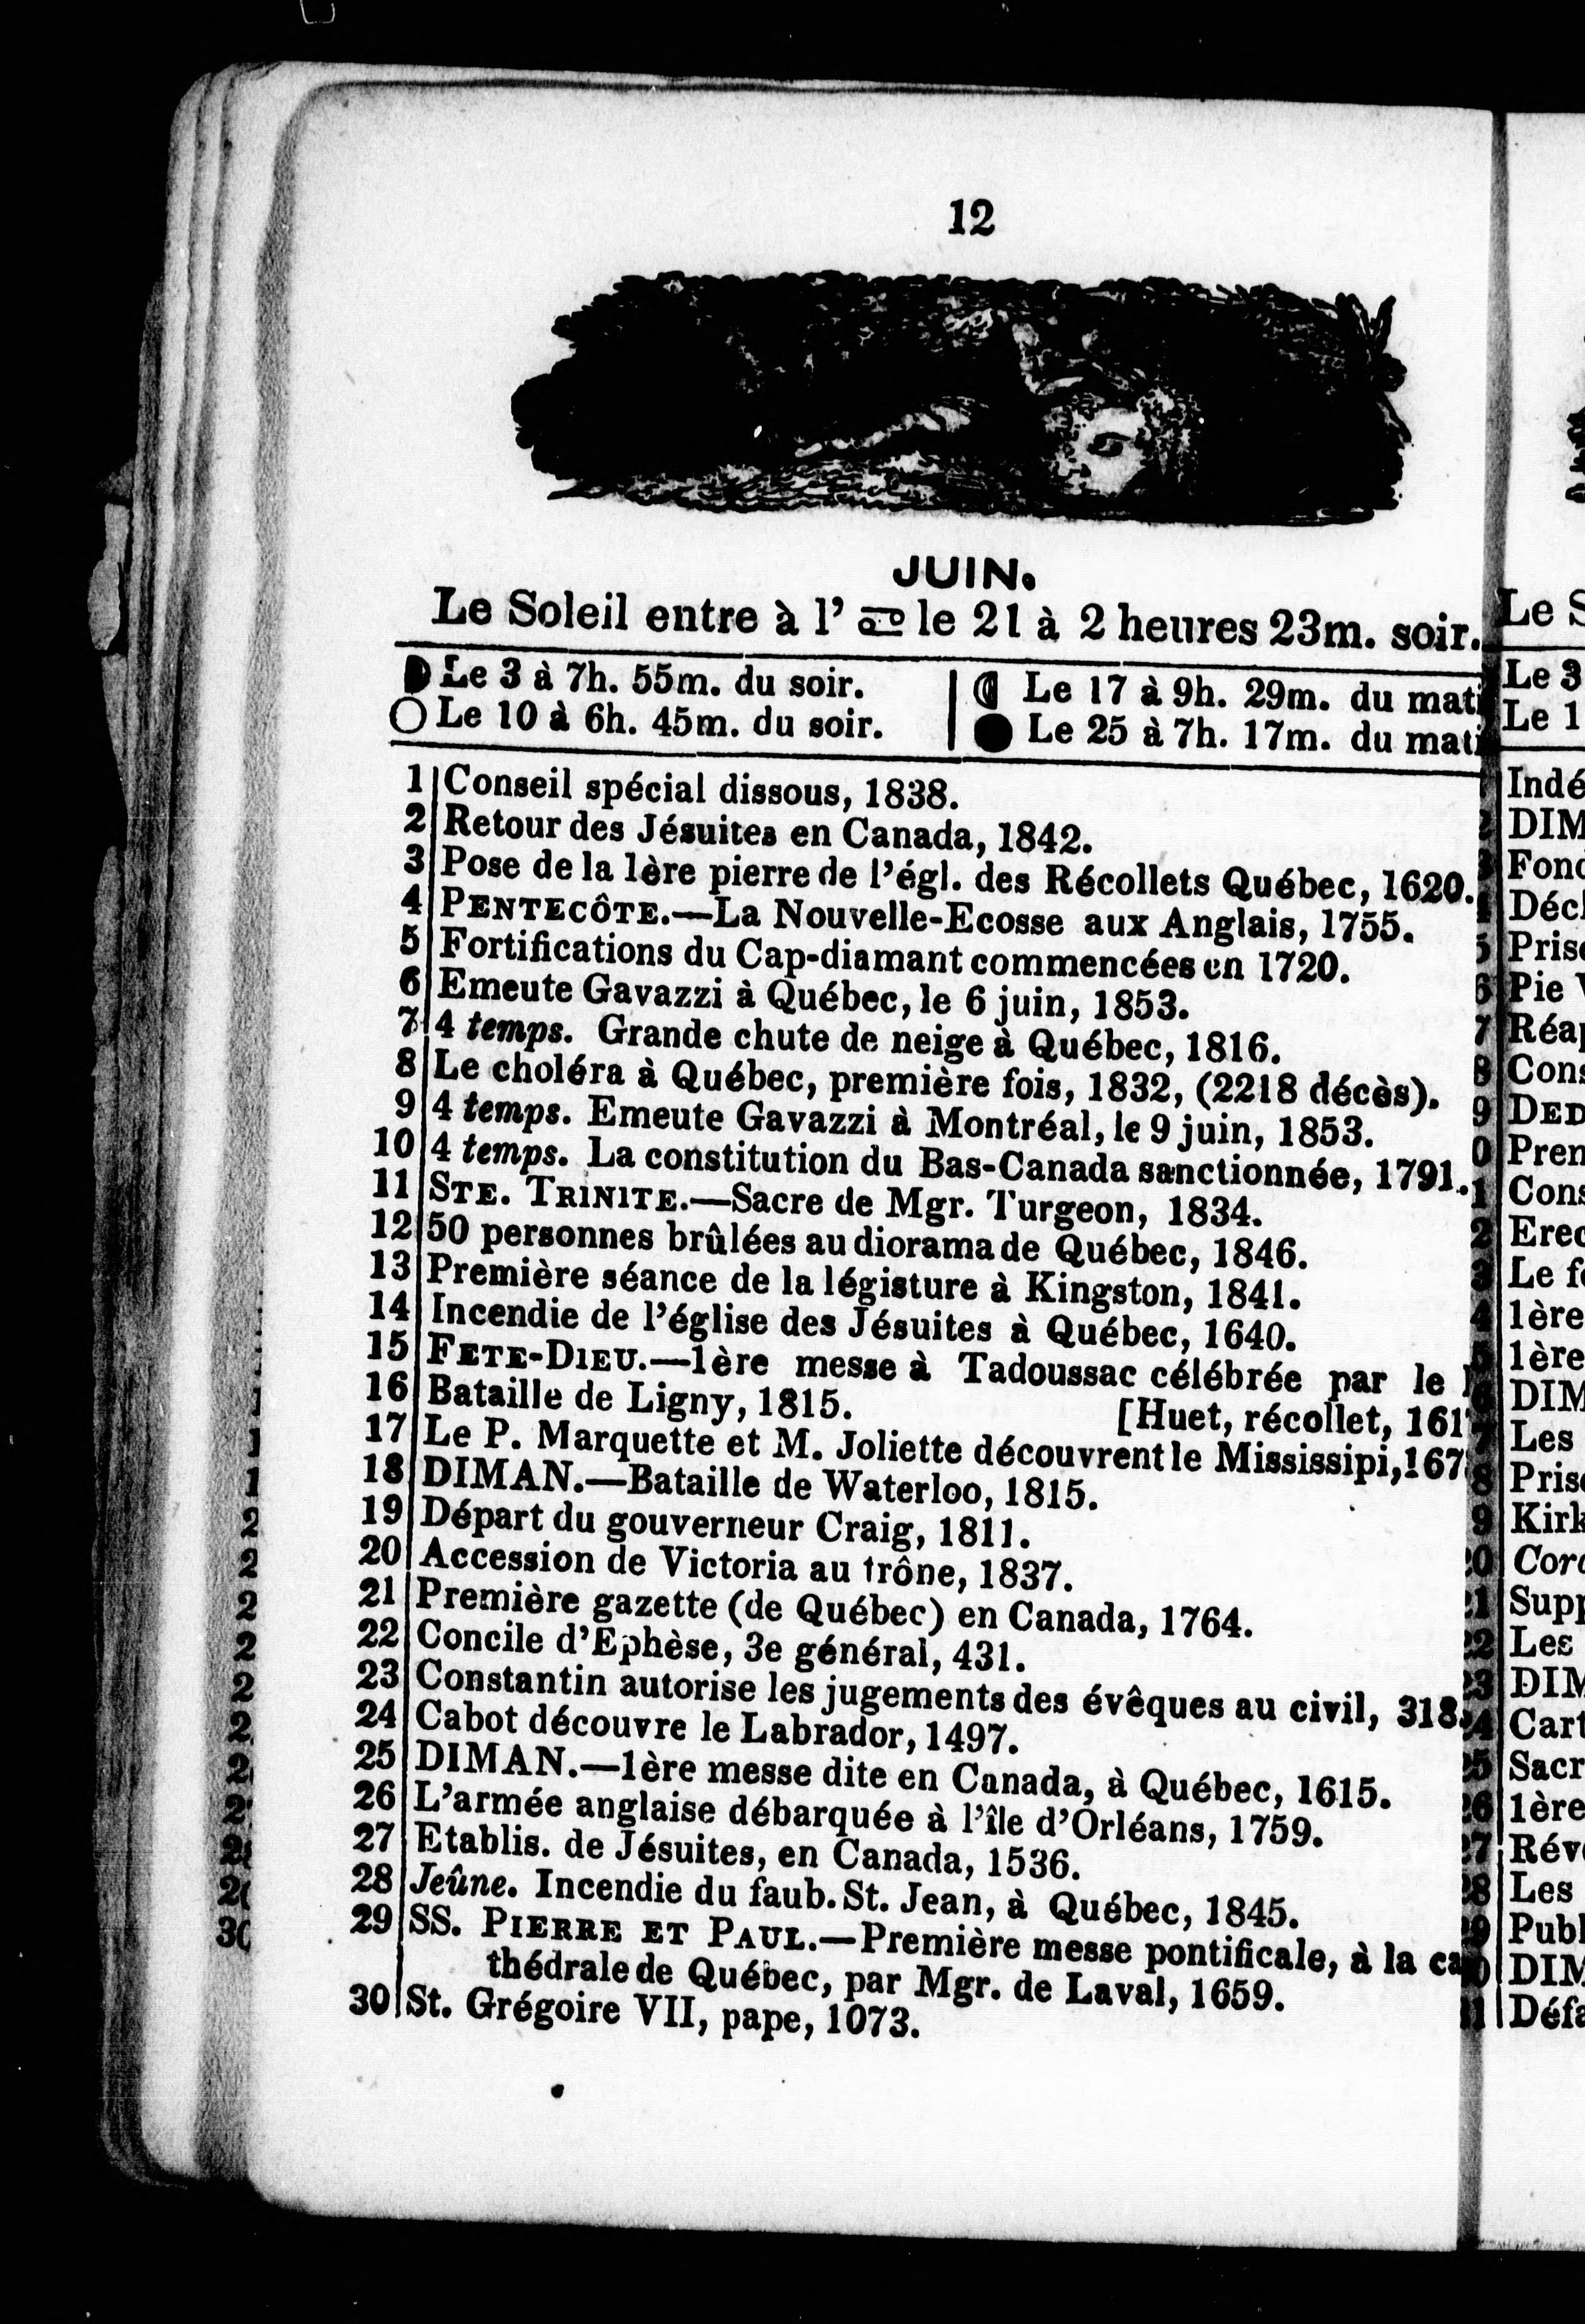 12
JUIN.
Le Soleil entre à l'♋ le 21 à 2 heures 23m. soir.
Le 3 à 7h. 55m. du soir.
Le 10 à 6h. 45m. du soir.
Le 17 à 9h. 29m. du mati
Le 25 à 7h. 17m. du mati
1 Conseil spécial dissous, 1838.
2 Retour des Jésuites en Canada, 1842.
3 Pose de la 1ère pierre de l'égl. des Récollets Québec, 1620.
4 PENTECÔTE.—La Nouvelle-Ecosse aux Anglais, 1755.
5 Fortifications du Cap-diamant commencées en 1720.
6 Emeute Gavazzi à Québec, le 6 juin, 1853.
7 4 temps. Grande chute de neige à Québec, 1816.
8 Le choléra à Québec, première fois, 1832, (2218 décès).
9 4 temps. Emeute Gavazzi à Montréal, le 9 juin, 1853.
10 4 temps. La constitution du Bas-Canada sanctionnée, 1791.
11 STE. TRINITE.—Sacre de Mgr. Turgeon, 1834.
12 50 personnes brûlées au diorama de Québec, 1846.
13 Première séance de la légisture à Kingston, 1841.
14 Incendie de l'église des Jésuites à Québec, 1640.
15 FETE-DIEU.—1ère messe à Tadoussac célébrée par le
16 Bataille de Ligny, 1815. [Huet, récollet, 161
17 Le P. Marquette et M. Joliette découvrent le Mississipi, 167
18 DIMAN.—Bataille de Waterloo, 1815.
19 Départ du gouverneur Craig, 1811.
20 Accession de Victoria au trône, 1837.
21 Première gazette (de Québec) en Canada, 1764.
22 Concile d'Ephèse, 3e général, 431.
23 Constantin autorise les jugements des évêques au civil, 318.
24 Cabot découvre le Labrador, 1497.
25 DIMAN.—1ère messe dite en Canada, à Québec, 1615.
26 L'armée anglaise débarquée à l'île d'Orléans, 1759.
27 Etablis. de Jésuites, en Canada, 1536.
28 Jeûne. Incendie du faub. St. Jean, à Québec, 1845.
29 SS. PIERRE ET PAUL.—Première messe pontificale, à la ca
thédrale de Québec, par Mgr. de Laval, 1659.
30 St. Grégoire VII, pape, 1073.
Le S
Le 3
Le 1
Indé
2 DIM
3 Fond
Décl
5 Prise
6 Pie V
7 Réap
8 Cons
9 DED
0 Prem
1 Cons
2 Erec
3 Le fe
4 1ère
5 1ère
6 DIM
7 Les
8 Prise
9 Kirk
20 Coro
21 Supp
22 Les
23 DIM
24 Cart
25 Sacr
26 1ère
27 Réve
28 Les
29 Publ
DIM
Défa